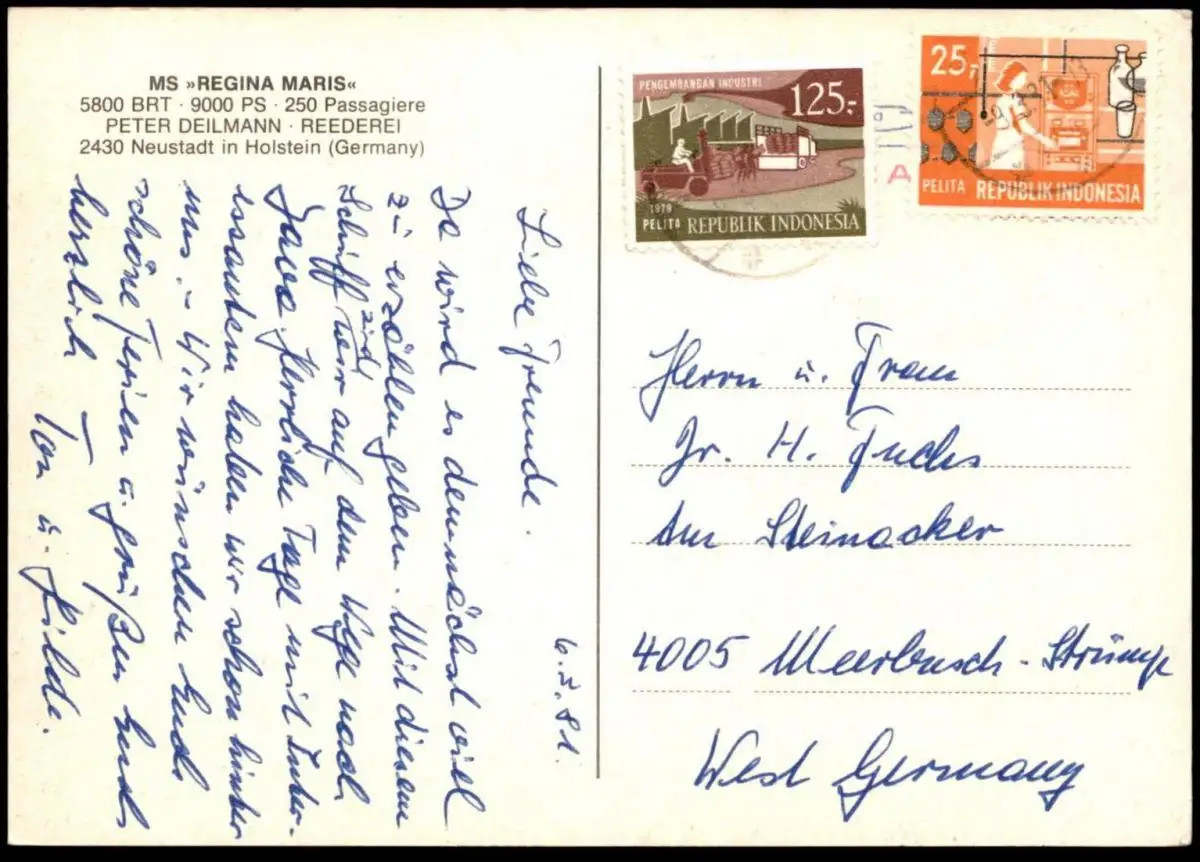 MS »REGINA MARIS«
5800 BRT · 9000 PS · 250 Passagiere
PETER DEILMANN · REEDEREI
2430 Neustadt in Holstein (Germany)
6.3.81.
Liebe Freunde.
Da wird es demnächst viel
zu erzählen geben. Mit diesem
Schiff sind wir auf dem Wege nach
Java. Herrliche Tage mit Inter-
essantem haben wir schon hinter
uns. - Wir wünschen Euch
schöne Ferien u. grüßen Euch
herzlich
Ton u. Hilde.
PENGEMBANGAN INDUSTRI
125.-
1979
PELITA REPUBLIK INDONESIA
25,-
PELITA REPUBLIK INDONESIA
A
Herrn u. Frau
Dr. H. Fuchs
Am Steinacker
4005 Meerbusch-Strümp
West Germany